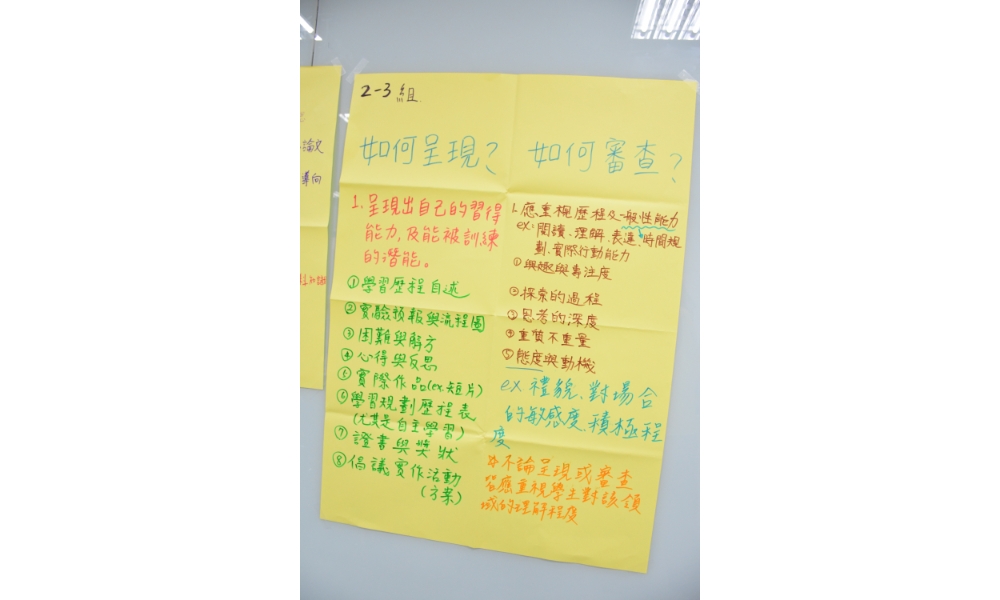 2-3 組
如何呈現?
1. 呈現出自己的習得
能力,及能被訓練
的潛能。
①學習歷程自述
②實驗預報與流程圖
③困難與解方
④心得與反思
⑤實際作品(ex.短片)
⑥學習規劃歷程表
(尤其是自主學習)
⑦證書與獎狀
⑧倡議實作活動
(方案)
如何審查?
1. 應重視歷程及一般性能力
ex: 閱讀、理解、表達、時間規
劃、實際行動能力
①興趣與專注度
②探索的過程
③思考的深度
④重質不重量
⑤態度與動機
ex 禮貌、對場合
的敏感度、積極程
度
不論呈現或審查
皆應重視學生對該領
域的理解程度
論文
導向